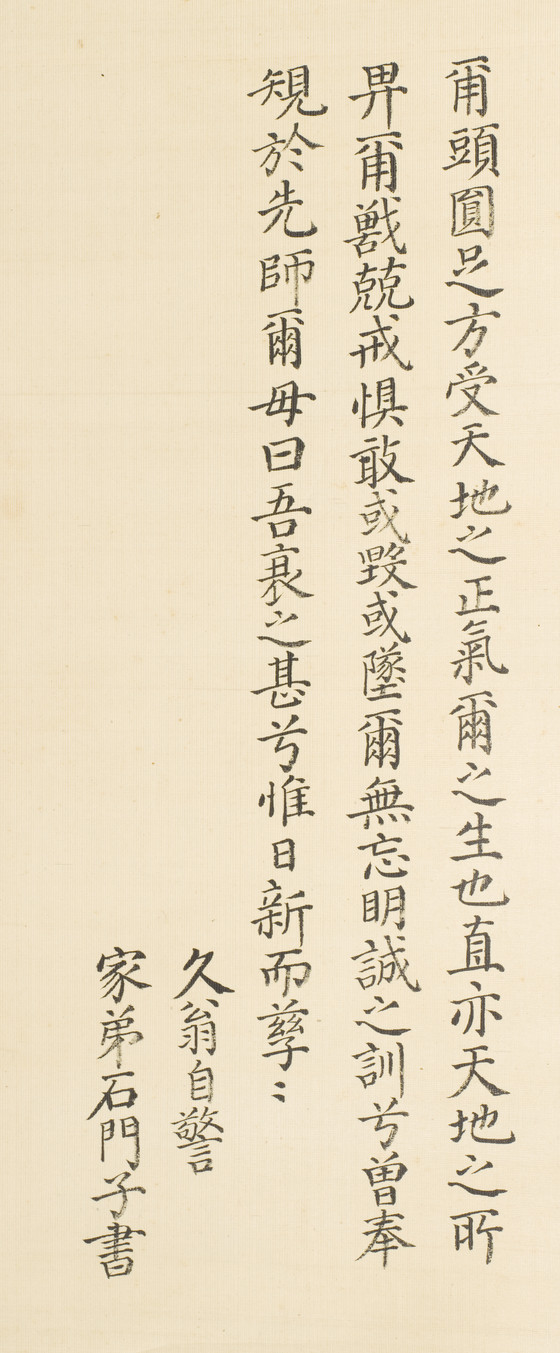 爾頭圓足方受天地之正氣爾之生也直亦天地之所
畀爾戰兢戒惧敢或毀或墜爾無忘明誠之訓兮曽奉
規於先師爾毋曰吾衰之甚兮惟日新而孳〻
久翁自警
家弟石門子書